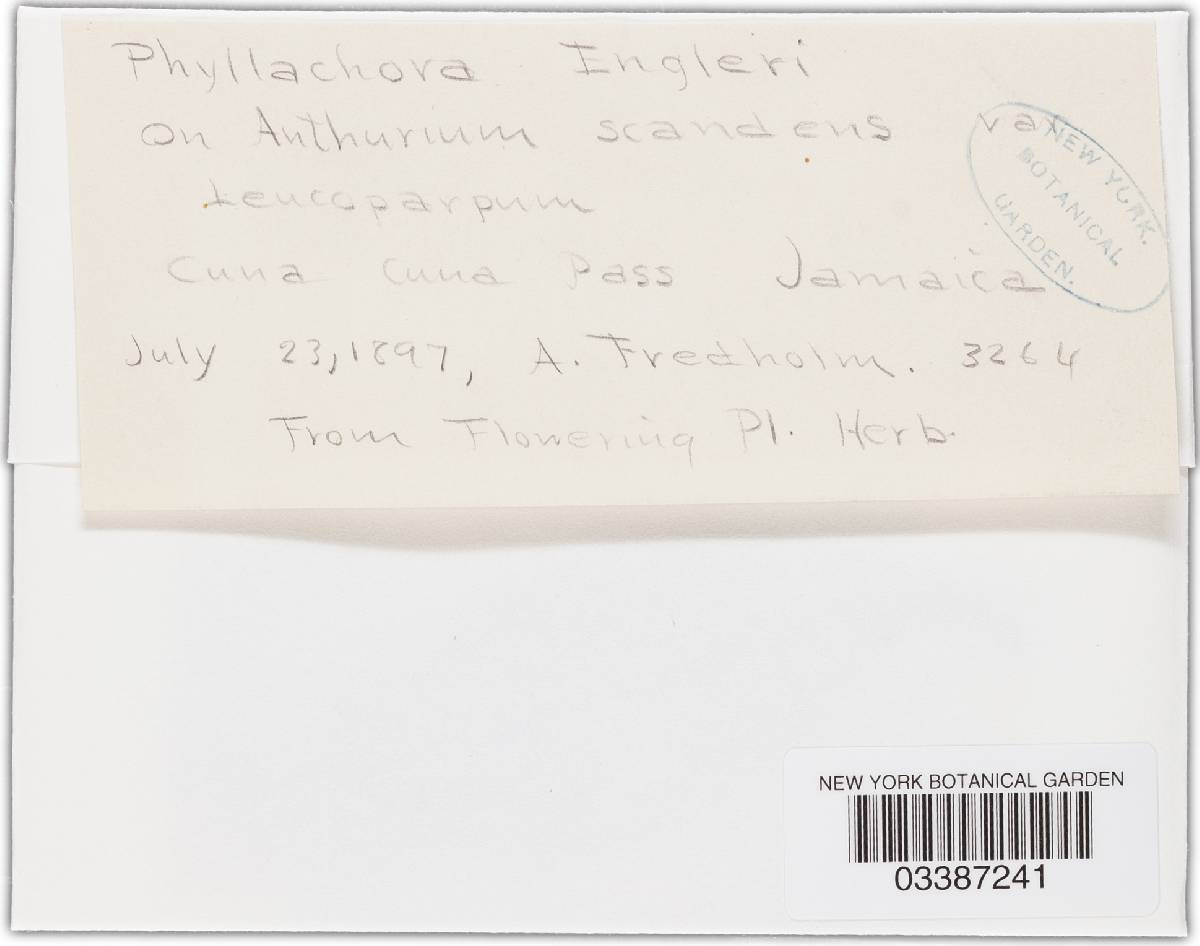 Phyllachora Engleri
on Anthurium scandens var
leucoparpum
Cuna Cuna Pass Jamaica
July 23, 1897, A. Fredholm. 3264
From Flowering Pl. Herb.
NEW YORK.
BOTANICAL
GARDEN.
NEW YORK BOTANICAL GARDEN
03387241